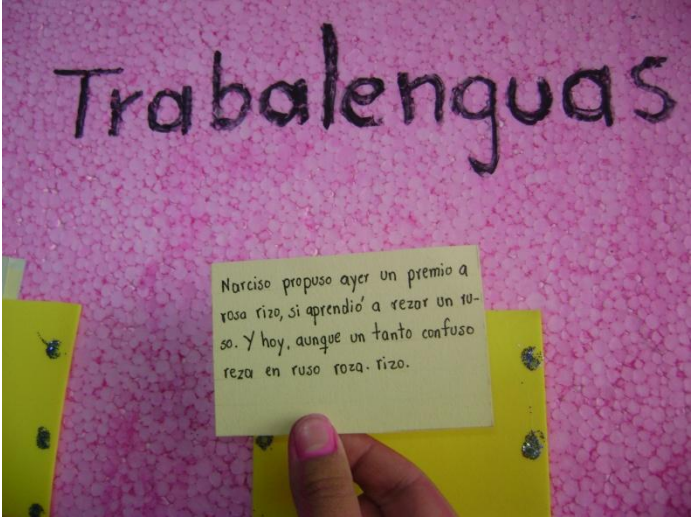 Trabalenguas
Narciso propuso ayer un premio a
rosa rizo, si aprendió a rezar un ru-
so. Y hoy, aunque un tanto confuso
reza en ruso roza. rizo.